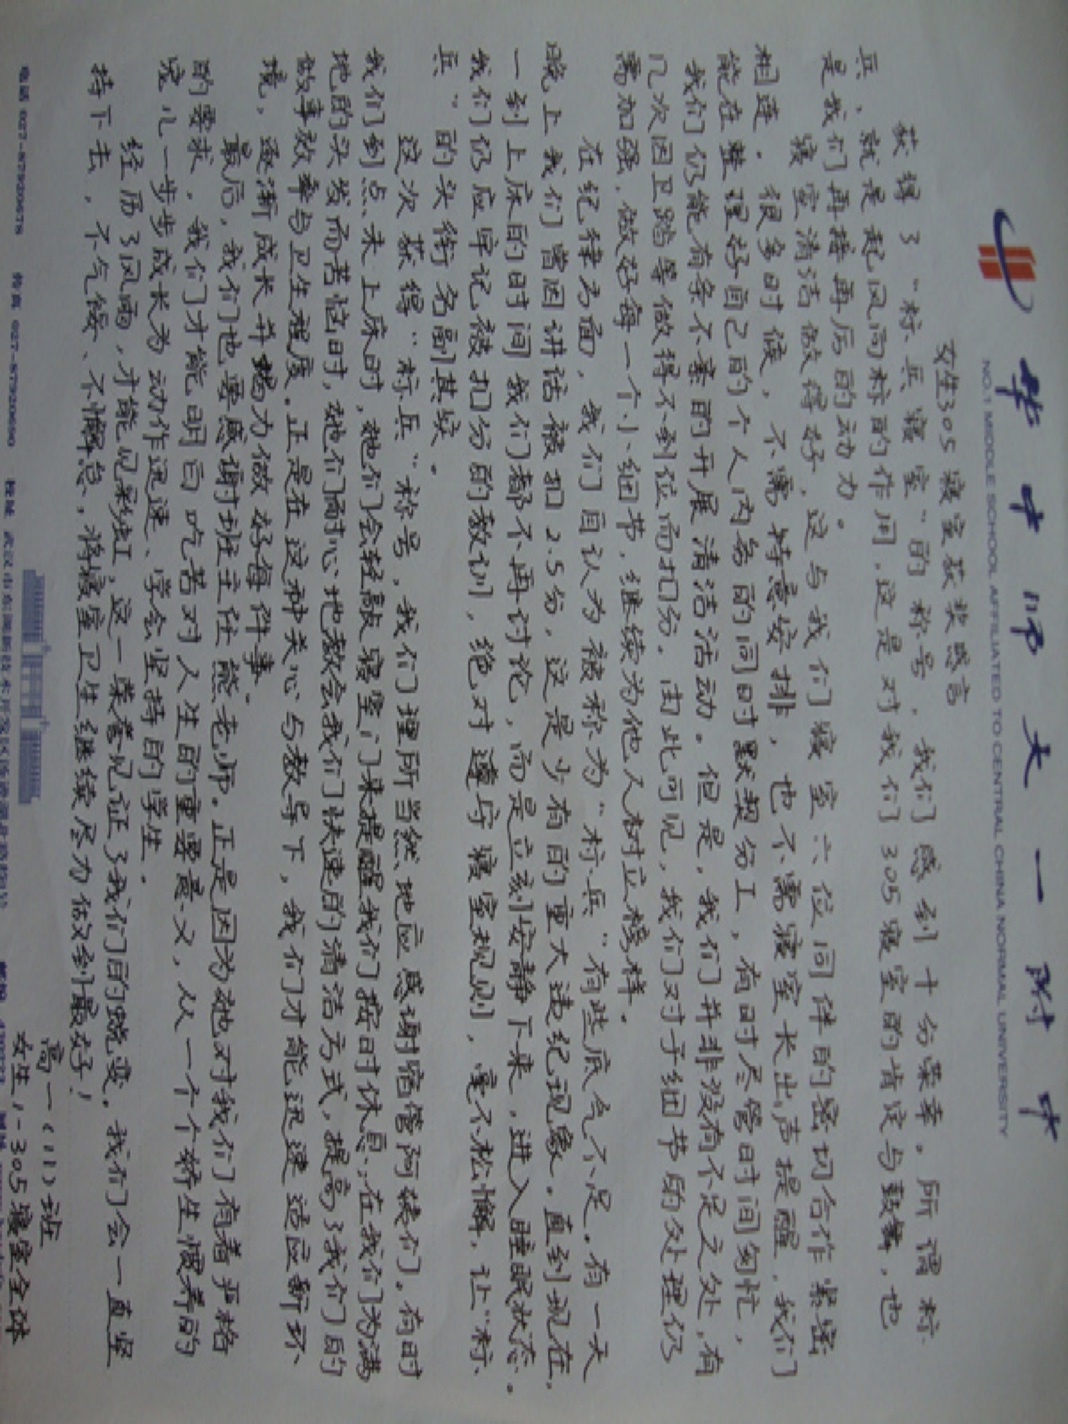 华中师大一附中
NO.1 MIDDLE SCHOOL AFFILIATED TO CENTRAL CHINA NORMAL UNIVERSITY
女生305寝室获奖感言
获得了“标兵寝室”的称号,我们感到十分荣幸,所谓标
兵,就是起风向标的作用,这是对我们305寝室的肯定与鼓舞,也
是我们再接再厉的动力。
寝室清洁做得好,这与我们寝室六位同伴的密切合作紧密
相连。很多时候,不需特意安排,也不需寝室长出声提醒,我们
能在整理好自己的个人内务的同时默契分工,有时尽管时间匆忙,
我们仍能有条不紊的开展清洁活动。但是,我们并非没有不足之处,有
几次因卫踏等做得不到位而扣分。由此可见,我们对于细节的处理仍
需加强,做好每一个小细节,继续为他人树立榜样。
在纪律方面,我们自认为被称为“标兵”有些底气不足。有一天
晚上我们曾因讲话被扣2.5分,这是少有的重大违纪现象。直到现在,
一到上床的时间我们都不再讨论,而是立刻安静下来,进入睡眠状态。
我们仍应牢记被扣分的教训,绝对遵守寝室规则,毫不松懈,让“标
兵”的头衔名副其实。
这次获得“标兵”称号,我们理所当然地应感谢宿管阿姨们。有时
我们到点未上床时,她们会轻敲寝室门来提醒我们按时休息;在我们为满
地的头发而苦恼时,她们耐心地教会我们快速的清洁方式,提高了我们的
做事效率与卫生程度。正是在这种关心与教导下,我们才能迅速适应新环
境,逐渐成长并竭力做好每件事。
最后,我们也要感谢班主任熊老师。正是因为她对我们有着严格
的要求,我们才能明白吃苦对人生的重要意义,从一个个娇生惯养的
孩儿一步步成长为动作迅速、学会坚持的学生。
经历了风雨,才能见彩虹,这一荣誉见证了我们的蜕变。我们会一直坚
持下去,不气馁、不懈怠,将寝室卫生继续尽力做到最好!
高一(11)班
女生1-305寝室全体
电话 027-87920678 传真 027-87920650 校址 武汉市东湖新技术开发区